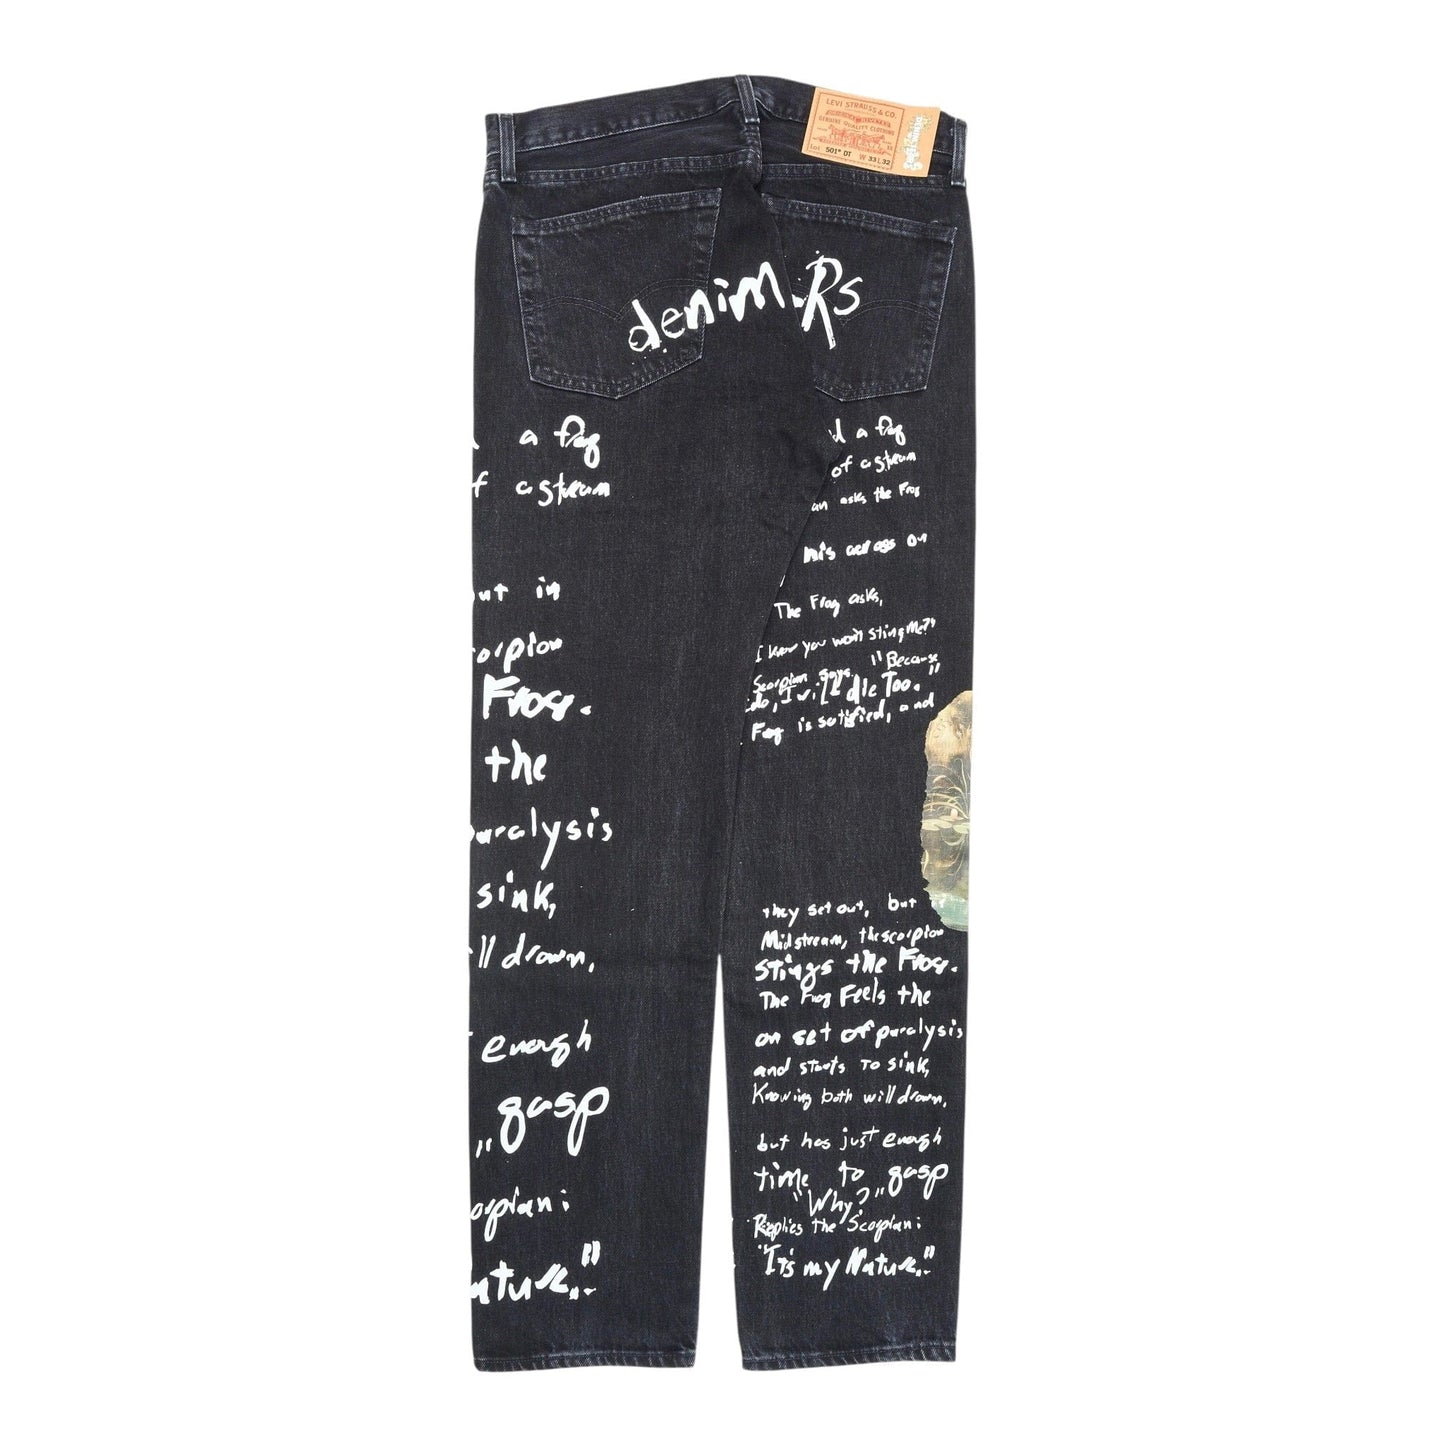 LEVI STRAUSS & CO.
GENUINE QUALITY CLOTHING
Lot 501® DT W 33 L 32
denim.Rs
a frog
f a stream
ut in
orpion
Frog.
the
paralysis
sink,
ll drown,
t enough
" gasp
orpian:
Nature.."
d a frog
of a stream
an asks the Frog
his across on
The Frog asks,
I know you won't sting me?"
Scorpian says, "Because
do, I will die Too."
Frog is satisfied, and
they set out, but in
Midstream, the scorpion
stings the Frog.
The Frog Feels the
on set of paralysis
and starts to sink,
Knowing both will drown,
but has just enough
time to gasp
"Why?"
Replies the Scorpian:
"It's my Nature.."